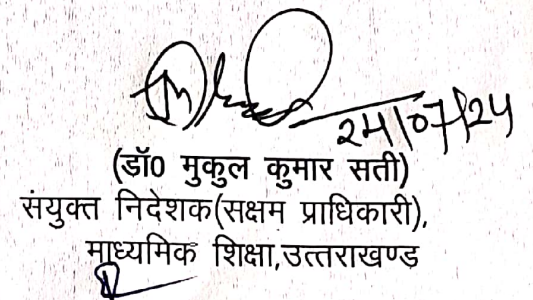 24/07/24
(डॉ0 मुकुल कुमार सती)
संयुक्त निदेशक(सक्षम प्राधिकारी),
माध्यमिक शिक्षा,उत्तराखण्ड